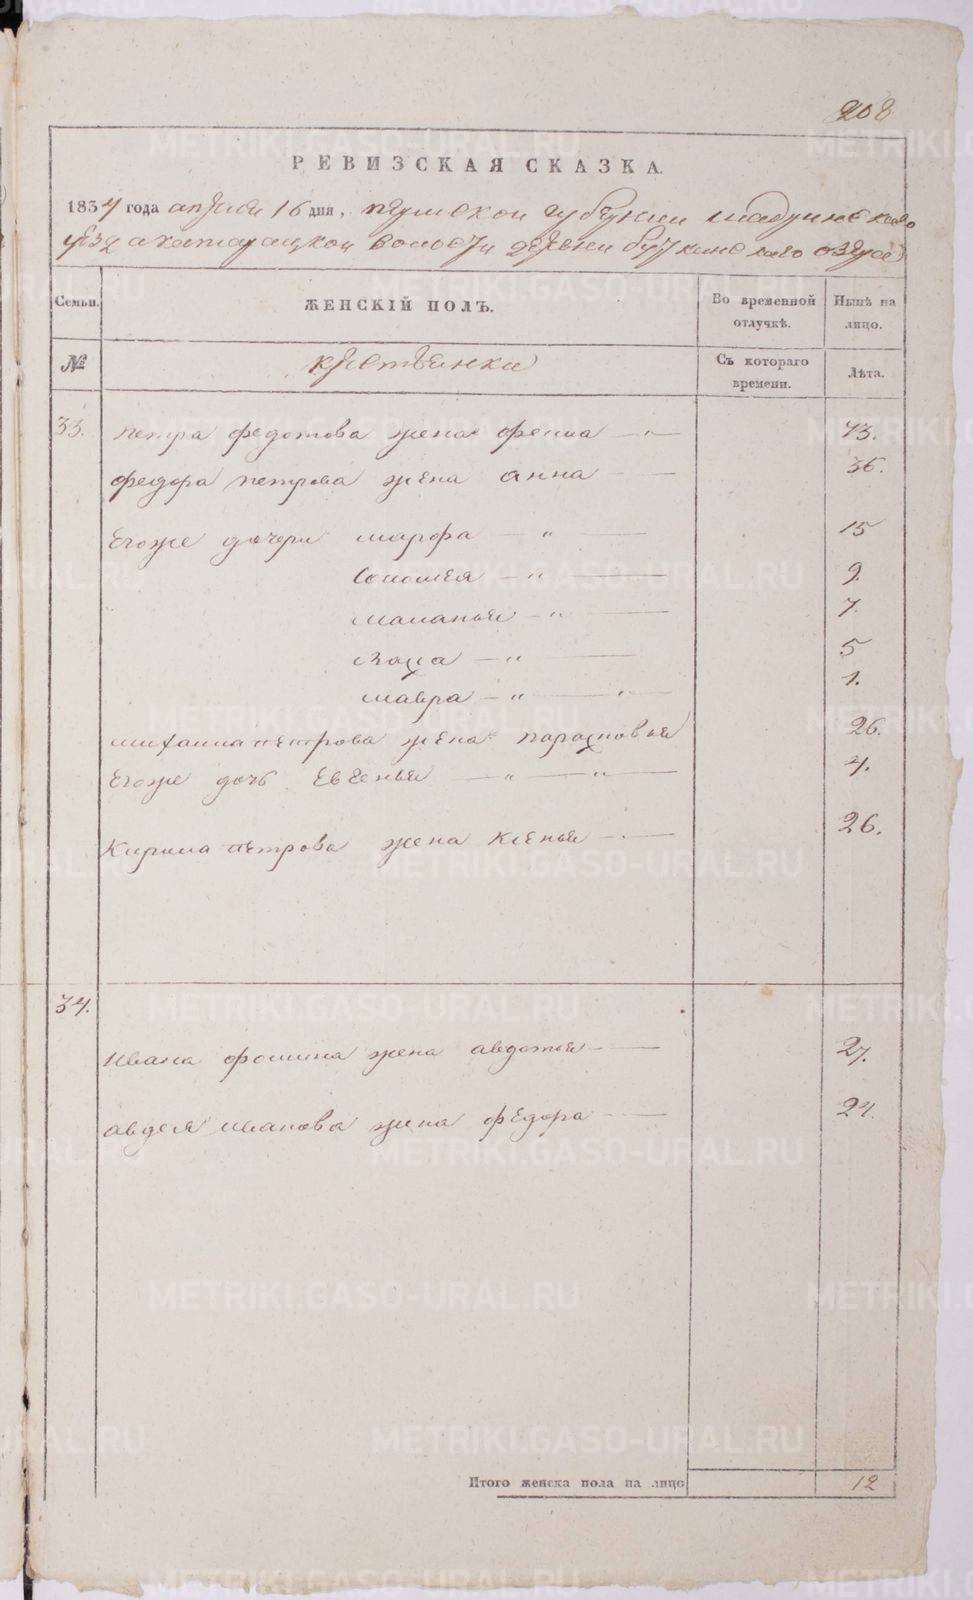 208
РЕВИЗСКАЯ СКАЗКА.
1834 года апреля 16 дня, пермской губернии шадринскаго
уезда ... волости деревни буткинскаго озера
Семьи. ЖЕНСКІЙ ПОЛЪ. Во временной отлучкѣ. Нынѣ на лицо.
№ крестьянки Съ котораго времени. Лѣта.
33. петра федотова жена офенша — „ 73.
федора петрова жена анна — 36.
Егоже дочери марфа — „ — 15
соломея — „ — 9.
маланья — „ — 7.
5
мавра — „ — „ — 1.
михаила петрова жена парасковья 26.
Егоже дочь Евгенья — „ — „ — 4.
Кирила петрова жена ксенья — 26.
34.
ивана фомина жена авдотья — 27.
авдея иванова жена федора — 24.
Итого женска пола на лицо 12
METRIKI.GASO-URAL.RU